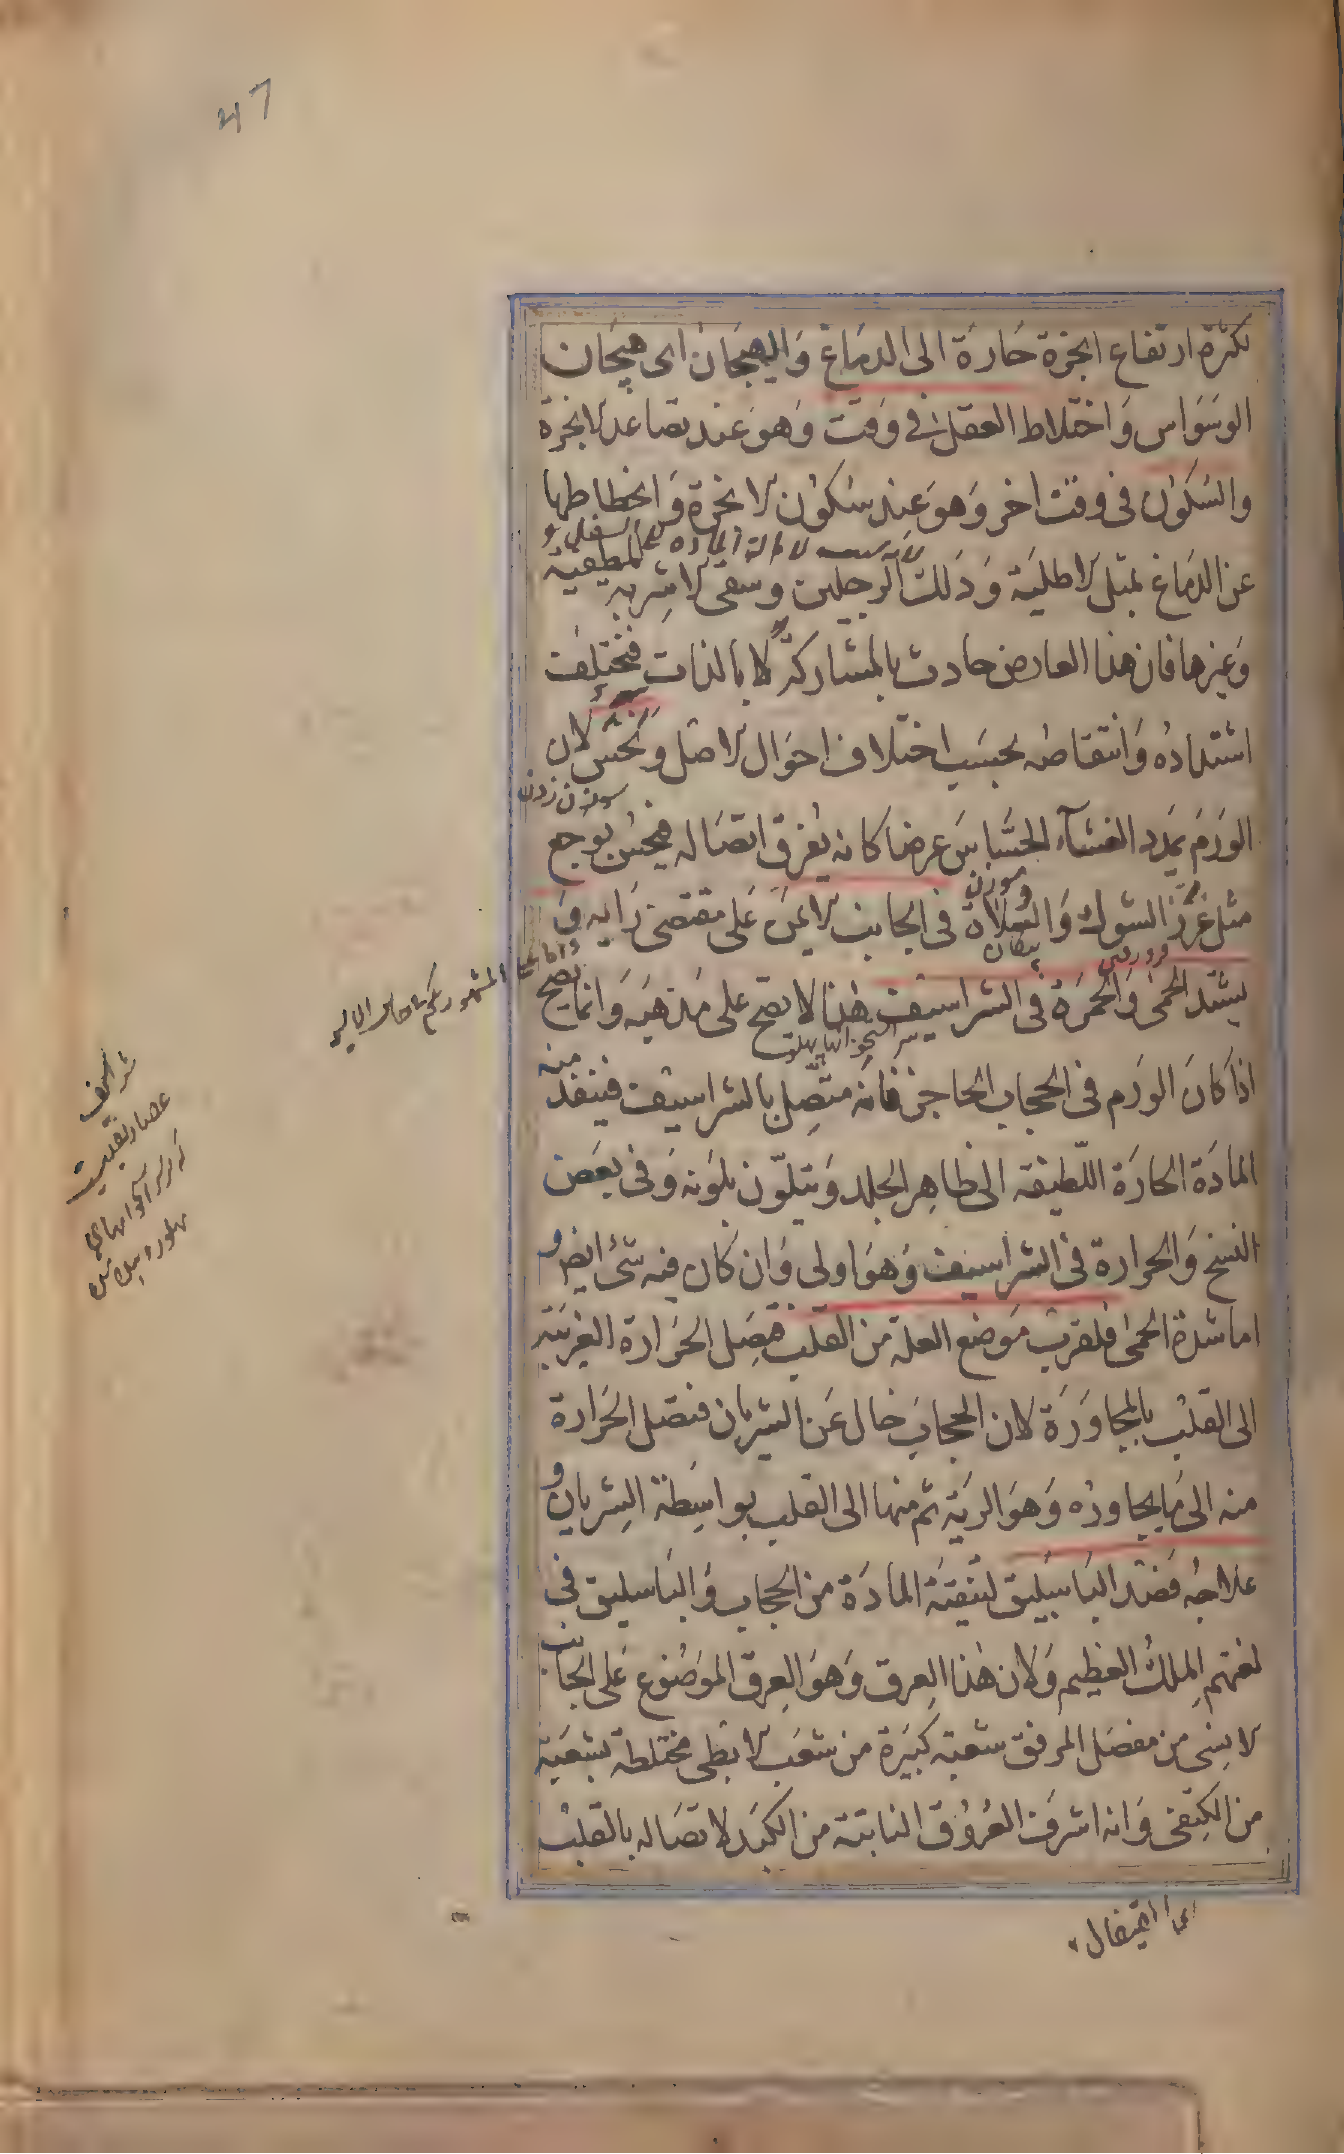 47
لكثرة ارتفاع ابخرة حارة الى الدماغ والهيجان اى هيجان
الوسواس واختلاط العقل فى وقت وهو عند تصاعد الابخرة
والسكون فى وقت اخر وهو عند سكون الابخرة وانحطاطها
عن الدماغ بمثل الاطلية وذلك الرجلين وسقى الاشربة المطفية
وغيرها فان هذا العارض حادث بالمشاركة لا بالذات فيختلف
اشتداده وانتقاصه بحسب اختلاف احوال الاصل ونخس لان
سوزن زدن
الورم يمدد الغشاء الحساس عرضا كانه يفرق اتصاله فيحس بوجع
مثل غرز الشوك والسلاة فى الجانب الايمن على مقتضى رايه و
يشتد الحمى والحمرة فى الشراسيف هذا لا يصح على مذهبه وانما يصح
اذا كان الورم فى الحجاب الحاجز فانه متصل بالشراسيف فينفذ منه
المادة الحارة اللطيفة الى ظاهر الجلد ويتلون بلونه وفى بعض
النسخ والحرارة فى الشراسيف وهو اولى وان كان فيه شئ ايضا و
اما شدة الحمى فلقرب موضع العلة من القلب فيصل الحرارة الغريبة
الى القلب بالمجاورة لان الحجاب خال عن الشريان فتصل الحرارة
منه الى ما يجاوره وهو الرية ثم منها الى القلب بواسطة الشريان و
علاجه فصد الباسليق لتنقية المادة من الحجاب والباسليق فى
لغتهم الملك العظيم ولان هذا العرق وهو العرق الموضوع على الجانب
الانسى من مفصل المرفق شعبة كبيرة من شعب الابطى مختلطة بشعبة
من الكتفى وانه اشرف العروق النابتة من الكبد لاتصاله بالقلب
شراسيف
اما القيفال